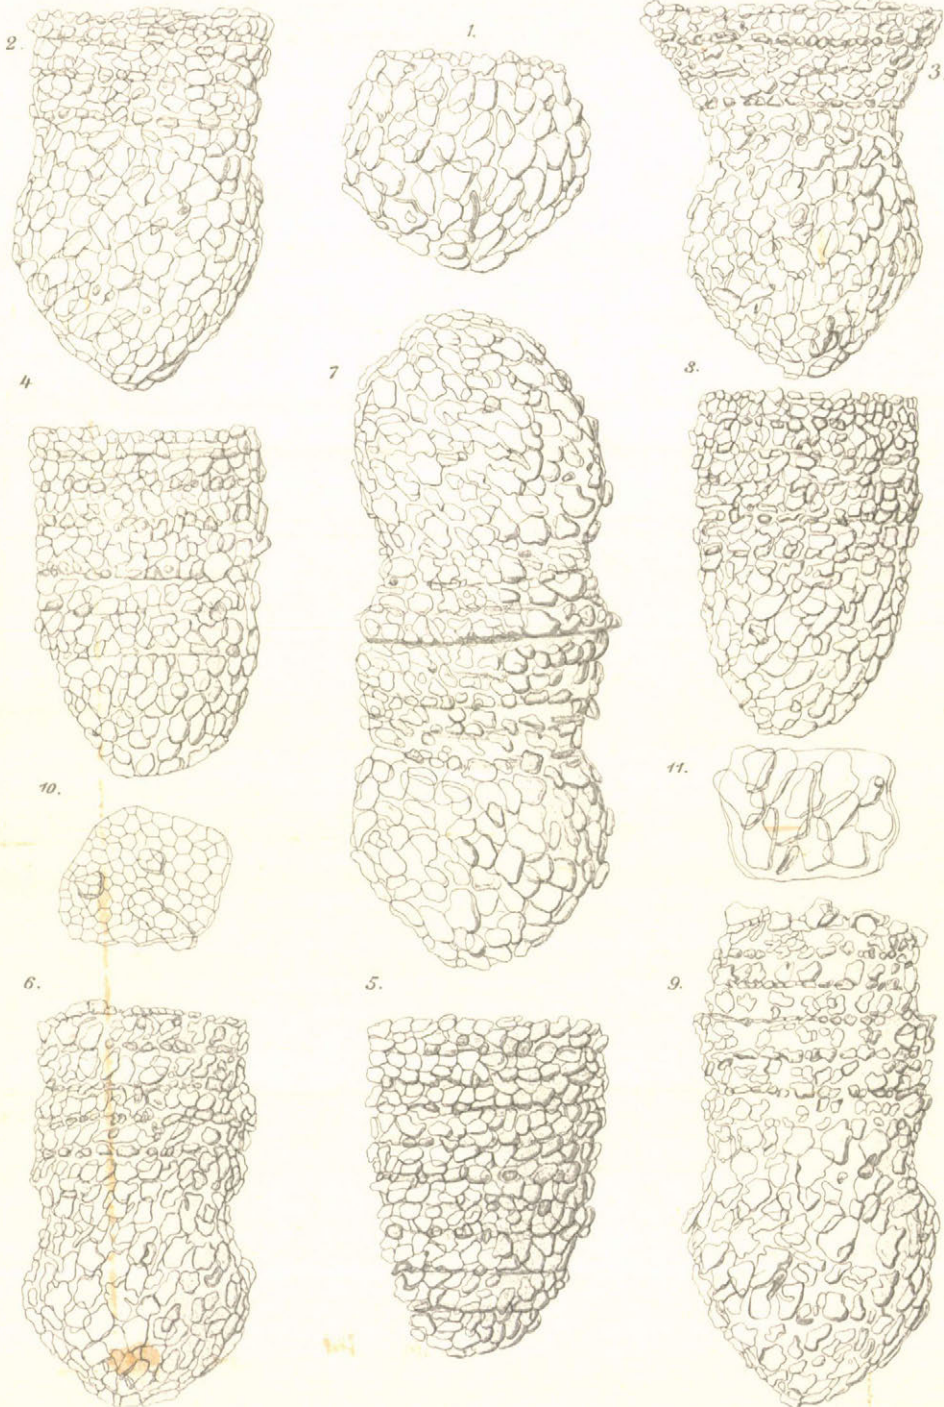 1.
2.
3
4
7
8.
10.
11.
6.
5.
9.